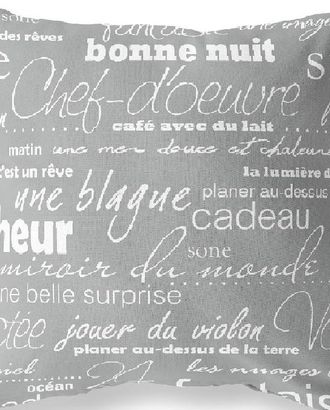 des rêves
bonne nuit
Chef-d'oeuvre
café avec du lait
matin une mer douce et chaleure
c'est un rêve
la lumière d
une blague
planer au-dessus
heur
cadeau
sone
miroir du monde
ne belle surprise
jouer du violon
planer au-dessus de la terre
nuages
océan